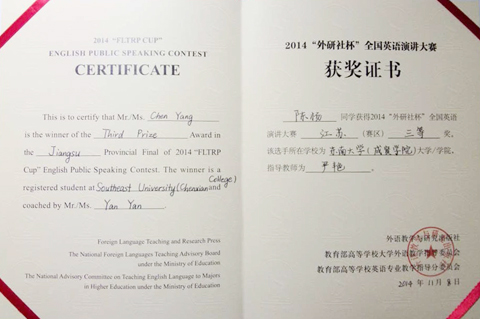 2014 "FLTRP CUP"
ENGLISH PUBLIC SPEAKING CONTEST
CERTIFICATE
This is to certify that Mr./Ms. Chen Yang
is the winner of the Third Prize Award in
the Jiangsu Provincial Final of 2014 "FLTRP
Cup" English Public Speaking Contest. The winner is a
registered student at Southeast University (Chengxian College) and
coached by Mr./Ms. Yan Yan.
Foreign Language Teaching and Research Press
The National Foreign Languages Teaching Advisory Board
under the Ministry of Education
The National Advisory Committee on Teaching English Language to Majors
in Higher Education under the Ministry of Education
2014 "外研社杯" 全国英语演讲大赛
获奖证书
陈扬 同学获得2014 "外研社杯" 全国英语
演讲大赛 江苏 (赛区) 三等 奖。
该选手所在学校为 东南大学(成贤学院) 大学/学院,
指导教师为 严艳 。
外语教学与研究出版社
教育部高等学校大学外语教学指导委员会
教育部高等学校英语专业教学指导分委员会
2014 年 11 月 8 日